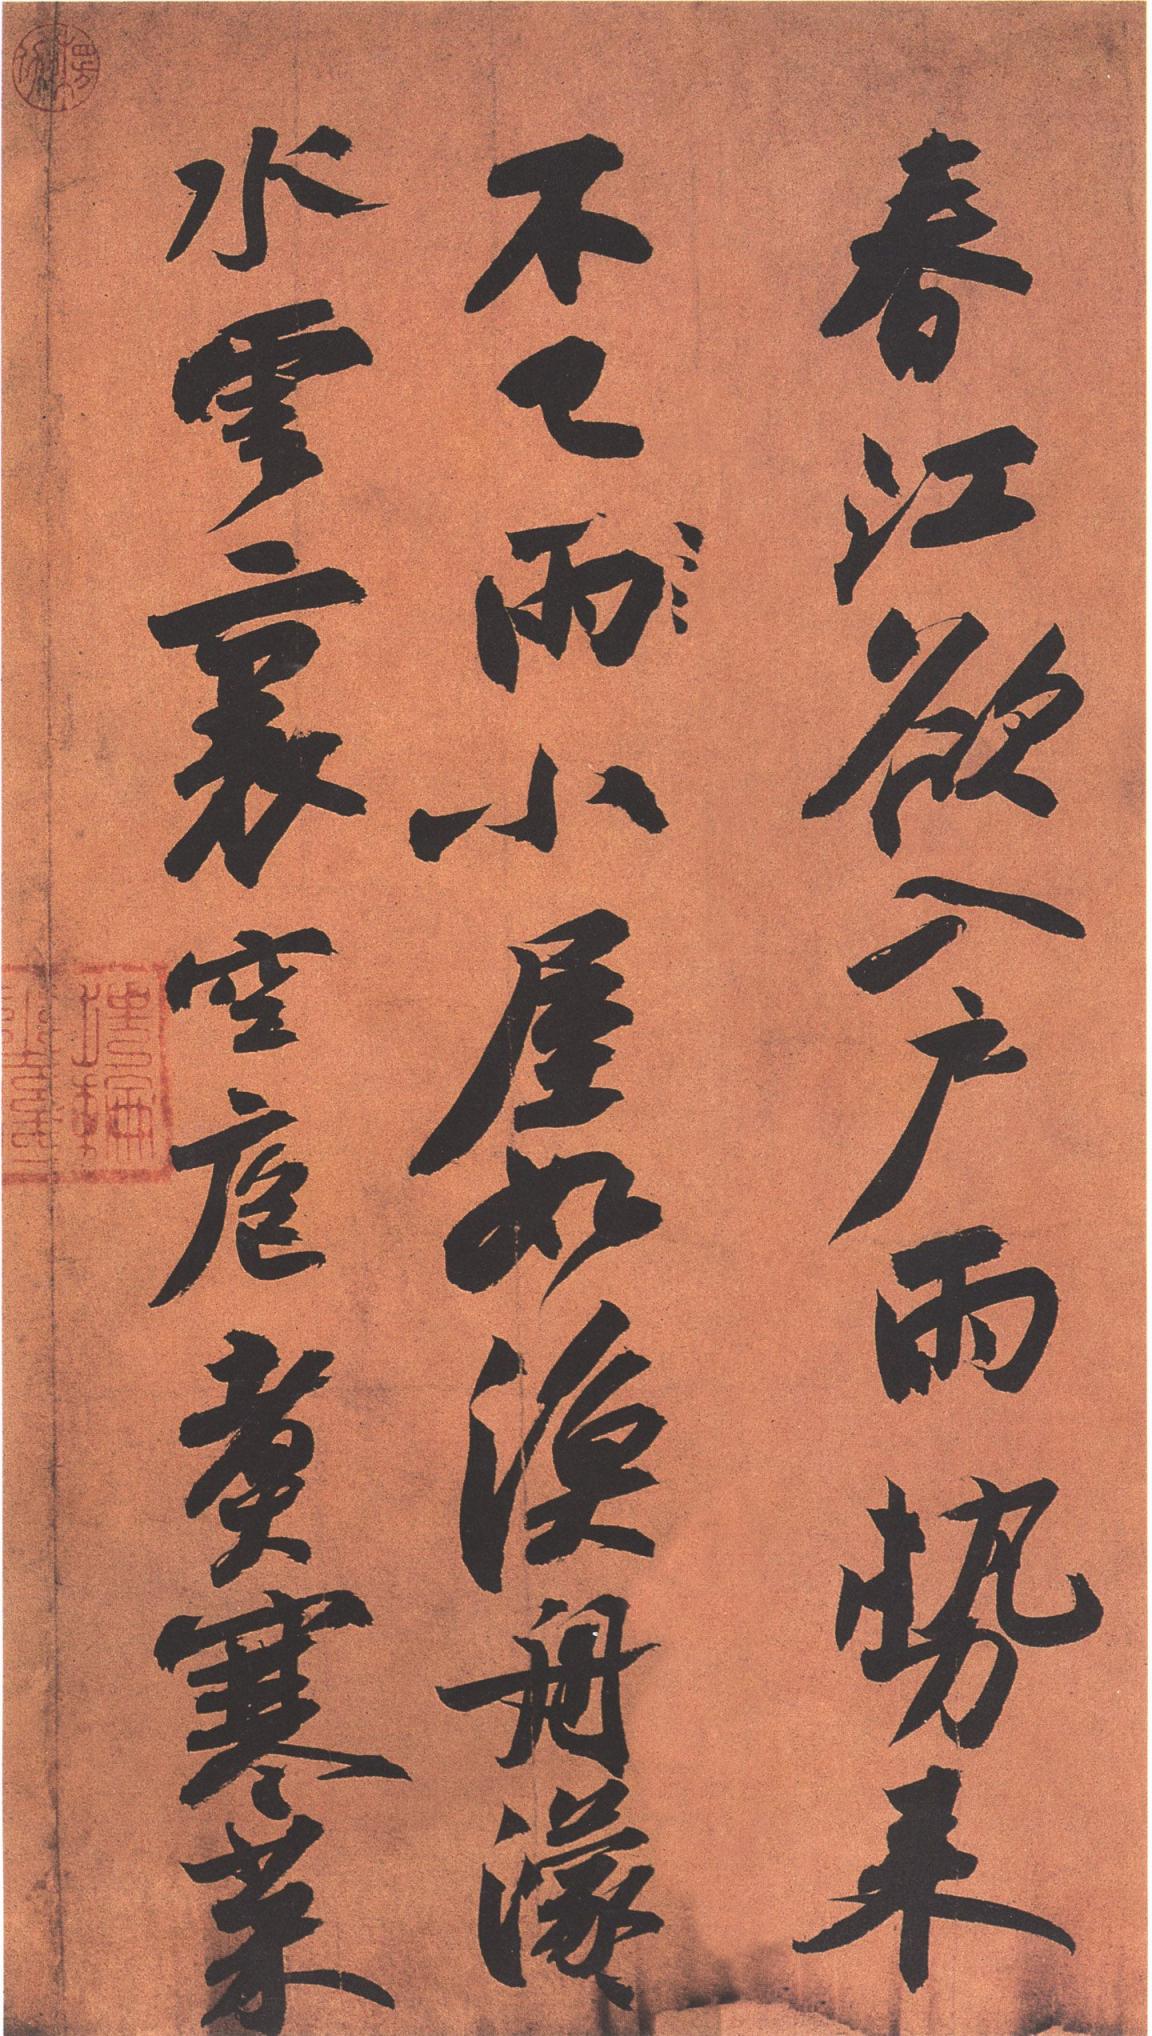 春江欲入戶雨勢来
不已雨小屋如漁舟濛〻
水雲裏空庖煮寒菜